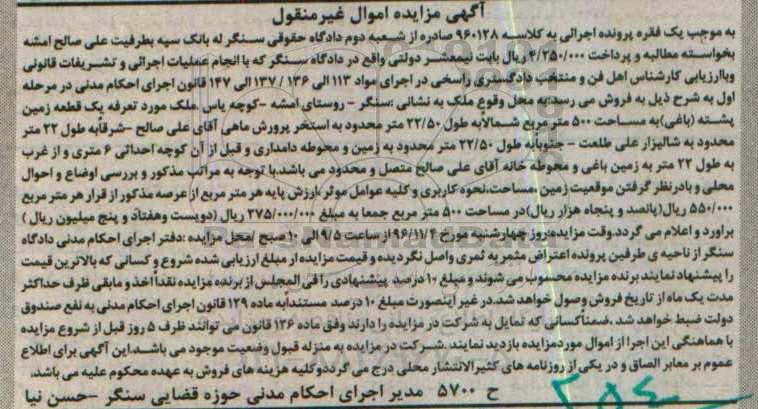 آگهی مزایده اموال غیرمنقول
به موجب یک فقره پرونده اجرائی به کلاسه ۹۶۰۱۲۸ صادره از شعبه دوم دادگاه حقوقی سنگر له بانک سپه بطرفیت علی صالح امشه
بخواسته مطالبه و پرداخت ۴/۲۵۰/۰۰۰ ریال بابت نیمعشر دولتی واقع در دادگاه سنگر که با انجام عملیات اجرائی و تشریفات قانونی
وباارزیابی کارشناس اهل فن و منتخب دادگستری راسخی در اجرای مواد ۱۱۳ الی ۱۳۶ / ۱۳۷ الی ۱۴۷ قانون اجرای احکام مدنی در مرحله
اول به شرح ذیل به فروش می رسد:به محل وقوع ملک به نشانی :سنگر - روستای امشه -کوچه یاس .ملک مورد تعرفه یک قطعه زمین
پشته (باغی)به مساحت ۵۰۰ متر مربع شمالاًبه طول ۲۲/۵۰ متر محدود به استخر پرورش ماهی آقای علی صالح -شرقاًبه طول ۲۲ متر
محدود به شالیزار علی طلعت - جنوباًبه طول ۲۲/۵۰ متر محدود به زمین و محوطه دامداری و قبل از آن کوچه احداثی ۶ متری و از غرب
به طول ۲۲ متر به زمین باغی و محوطه خانه آقای علی صالح متصل و محدود می باشد.با توجه به مراتب مذکور و بررسی اوضاع و احوال
محلی و بادرنظر گرفتن موقعیت زمین ،مساحت،نحوه کاربری و کلیه عوامل موثر ،ارزش پایه هر متر مربع از عرصه مذکور از قرار هر متر مربع
۵۵۰/۰۰۰ ریال(پانصد و پنجاه هزار ریال)در مساحت ۵۰۰ متر مربع جمعا به مبلغ ۲۷۵/۰۰۰/۰۰۰ ریال (دویست وهفتاد و پنج میلیون ریال )
براورد و اعلام می گردد.وقت مزایده:روز چهارشنبه مورخ ۹۶/۱۱/۴ از ساعت ۹/۵ الی ۱۰ صبح /محل مزایده :دفتر اجرای احکام مدنی دادگاه
سنگر از ناحیه ی طرفین پرونده اعتراض مثمر به ثمری واصل نگردیده و قیمت مزایده از مبلغ ارزیابی شده شروع و کسانی که بالاترین قیمت
را پیشنهاد نمایند برنده مزایده محسوب می شوند و مبلغ ۱۰ درصد پیشنهادی را فی المجلس از برنده مزایده نقداً اخذ و مابقی ظرف حداکثر
مدت یک ماه از تاریخ فروش وصول خواهد شد.در غیر اینصورت مبلغ ۱۰ درصد مستنداًبه ماده ۱۲۹ قانون اجرای احکام مدنی به نفع صندوق
دولت ضبط خواهد شد .ضمناًکسانی که تمایل به شرکت در مزایده را دارند وفق ماده ۱۲۶ قانون می توانند ظرف ۵ روز قبل از شروع مزایده
با هماهنگی این اجرا از اموال موردمزایده بازدید نمایند .شرکت در مزایده به منزله قبول وضعیت موجود می باشد.این آگهی برای اطلاع
عموم بر معابر الصاق و در یکی از روزنامه های کثیرالانتشار محلی درج می گرددوکلیه هزینه های فروش به عهده محکوم علیه می باشد.
ح ۵۷۰۰ مدیر اجرای احکام مدنی حوزه قضایی سنگر -حسن نیا